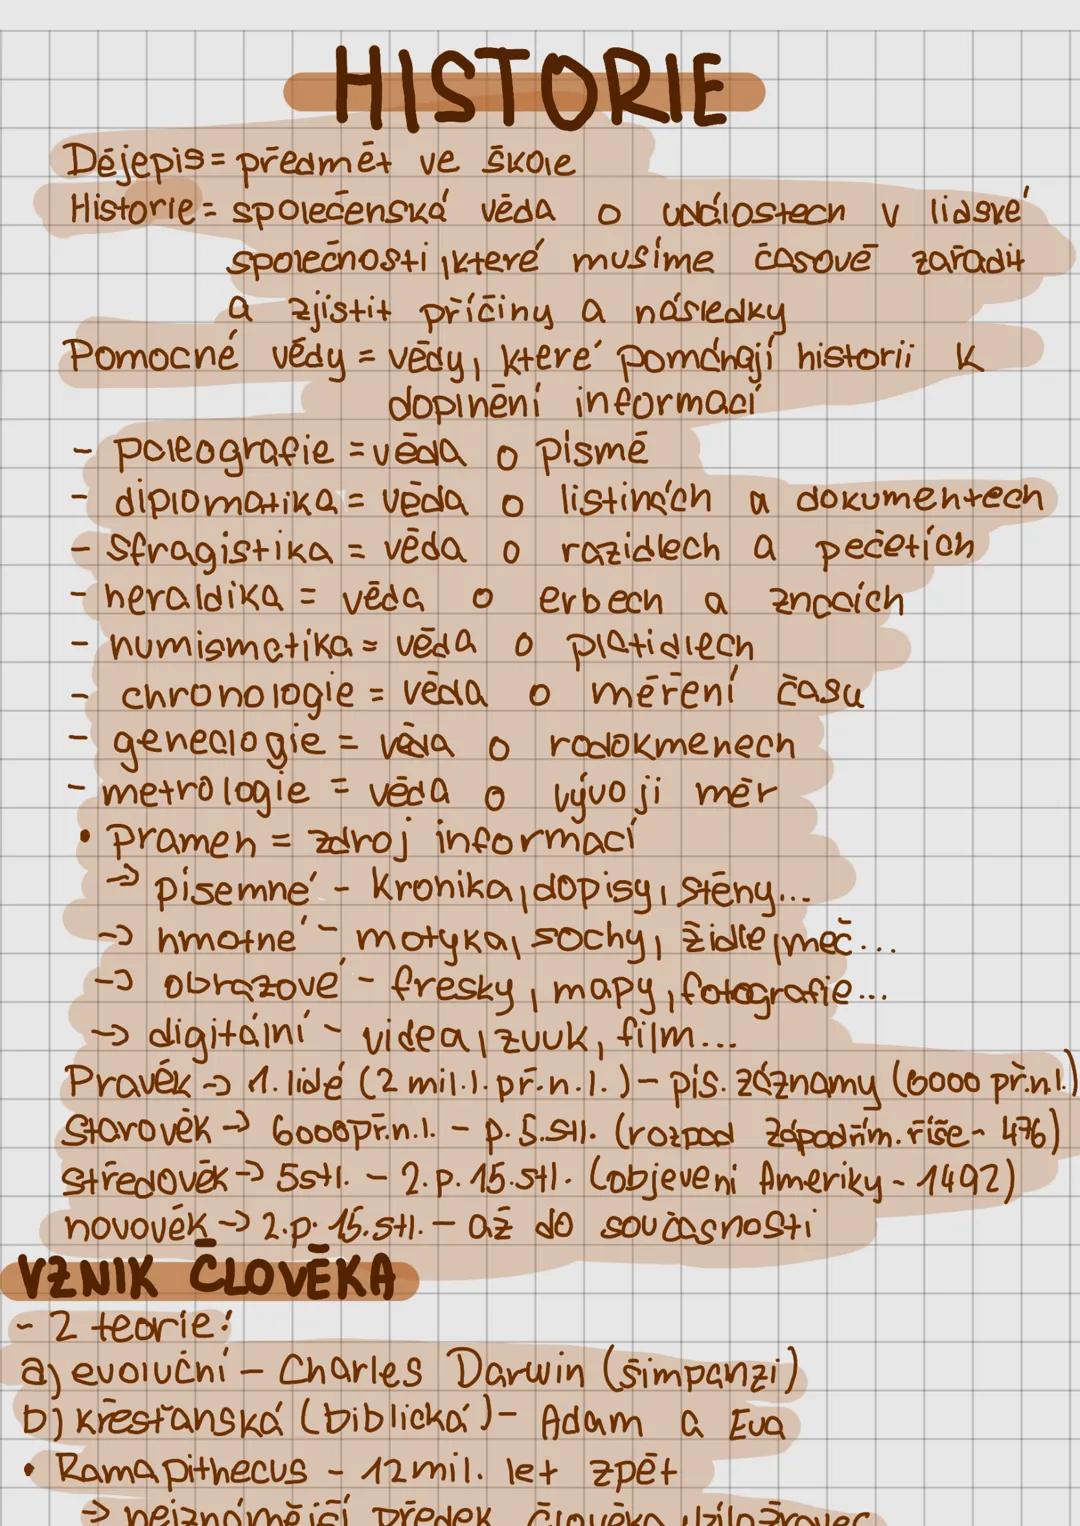 HISTORIE
Dějepis = předmět ve škole
Historie = společenská věda o událostech v lidské
společnosti, které musíme časově zařadit
a zjistit příčiny a následky
Pomocné vědy = vědy, které pomáhají historii k
doplnění informací
- paleografie = věda o písmě
- diplomatika = věda o listinách a dokumentech
- sfragistika = věda o razidlech a pečetích
- heraldika = věda o erbech a znacích
- numismatika = věda o platidlech
- chronologie = věda o měření času
- genealogie = věda o rodokmenech
- metrologie = věda o vývoji měr
• pramen = zdroj informací
→ písemné - kronika, dopisy, stěny...
→ hmotné - motyka, sochy, židle, meč...
→ obrazové - fresky, mapy, fotografie...
→ digitální - videa, zvuk, film...
Pravěk → 1. lidé (2 mil. l. př. n. l.) - pís. záznamy (6000 př. n. l.)
Starověk → 6000 př. n. l. - p. 5. stl. (rozpad západřím. říše - 476)
středověk → 5 stl. - 2. p. 15. stl. (objevení Ameriky - 1492)
novověk → 2. p. 15. stl. - až do současnosti
VZNIK ČLOVĚKA
- 2 teorie:
a) evoluční - Charles Darwin (šimpanzi)
b) křesťanská (biblická) - Adam a Eva
• Ramapithecus - 12 mil. let zpět
→ nejznámější předek člověka,